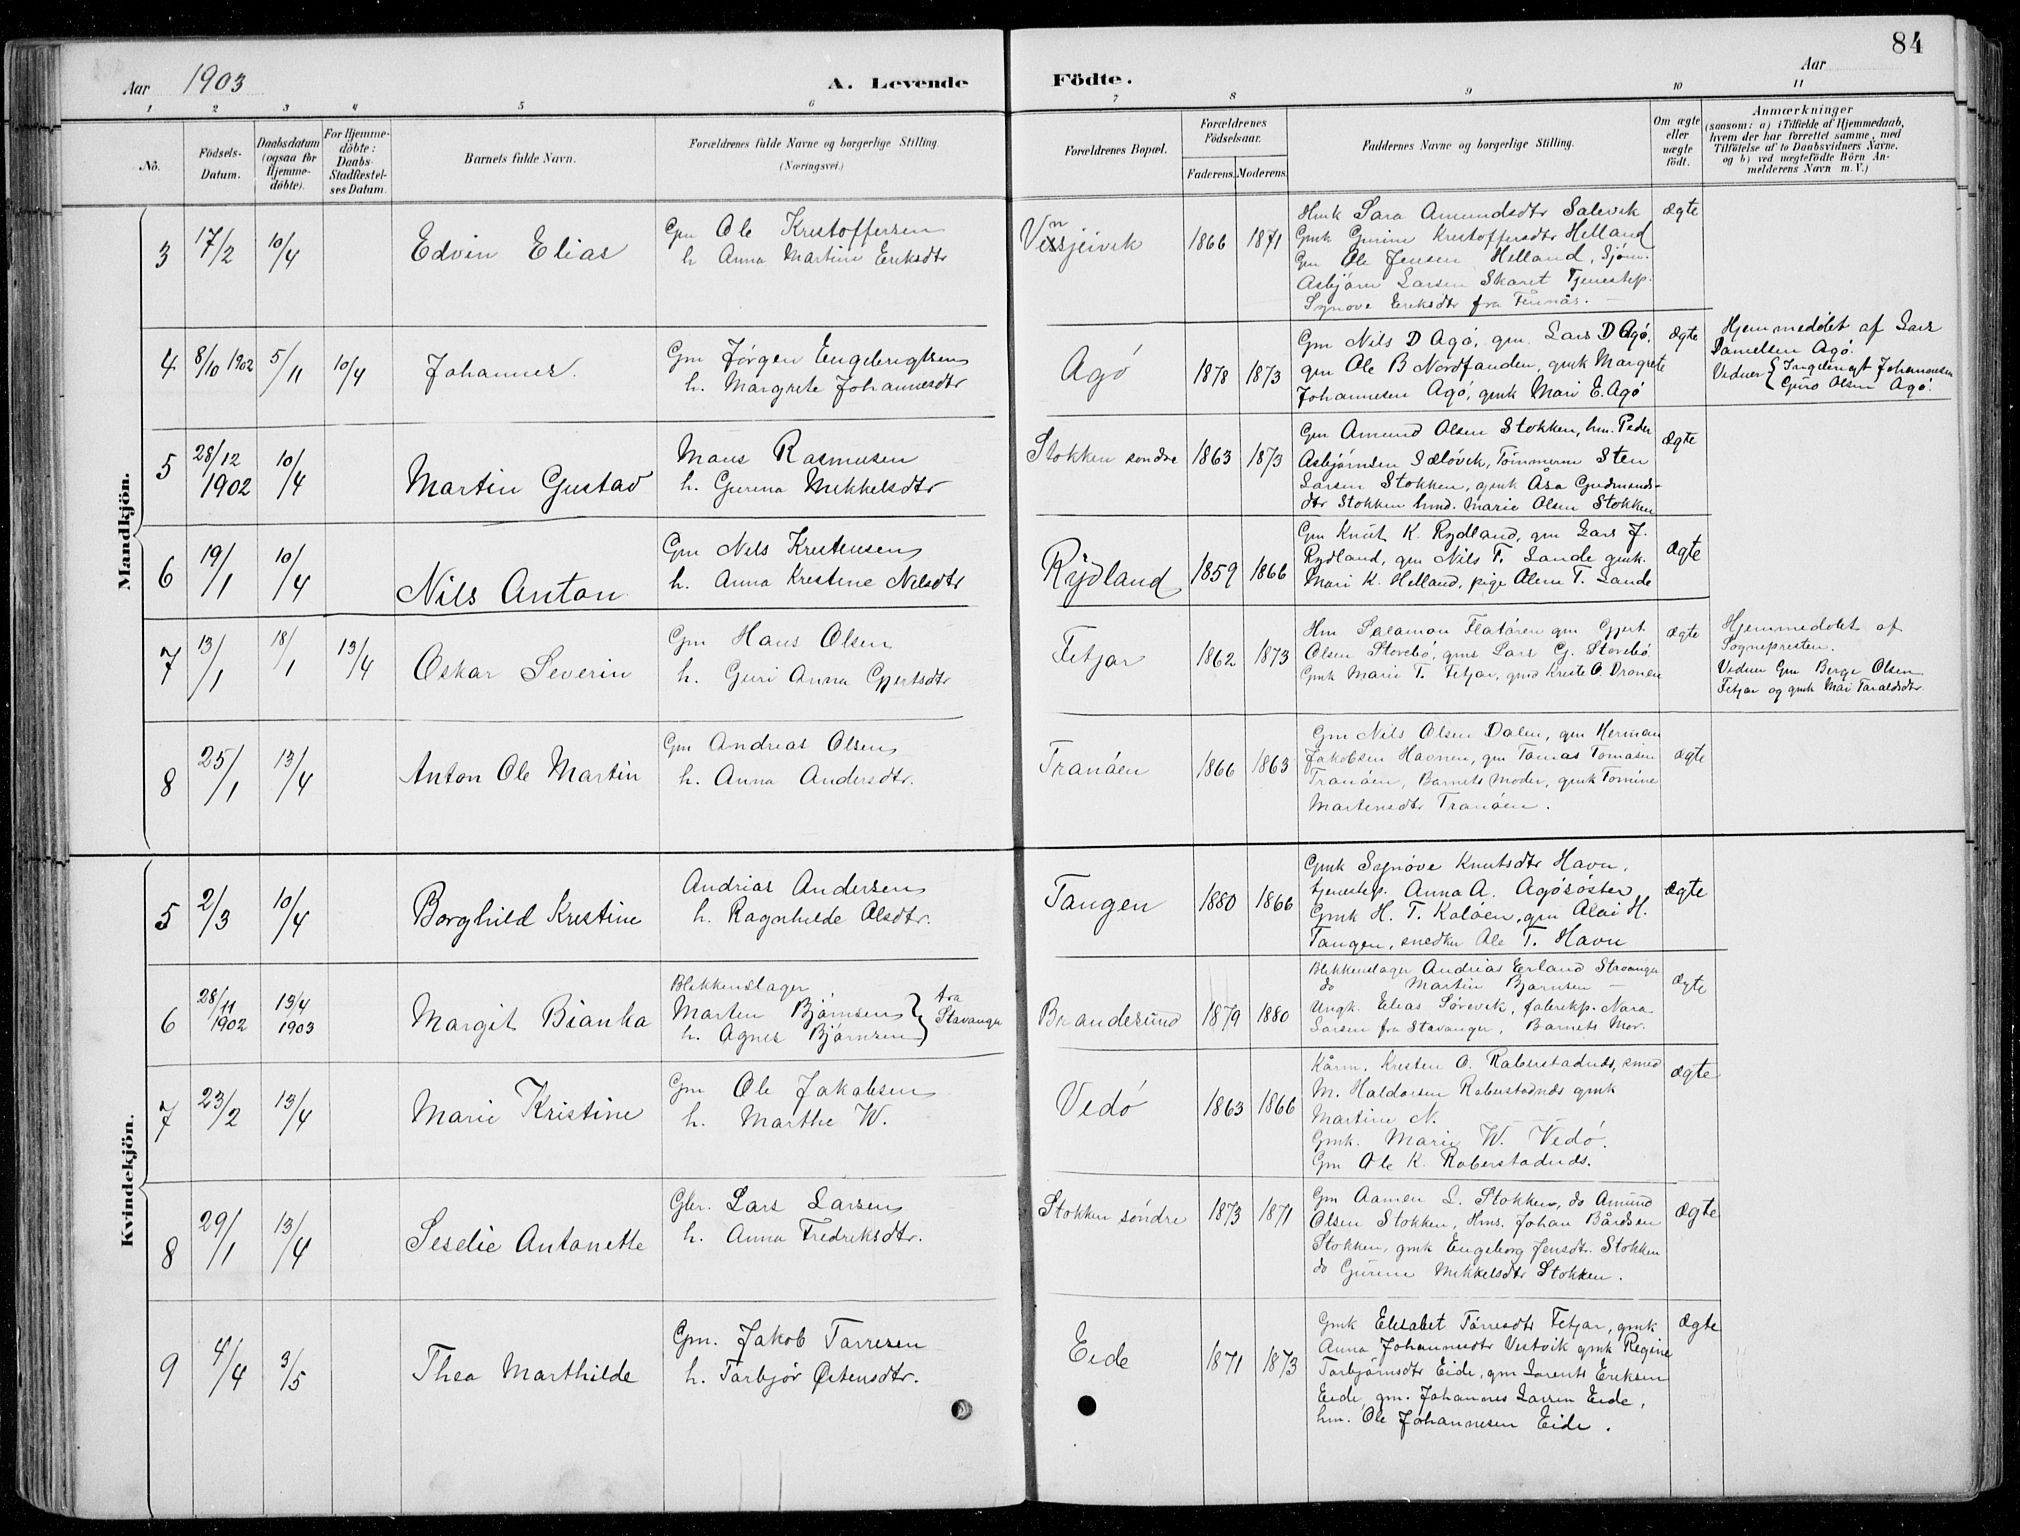 84
Aar 1903 A. Levende Födte. Aar
1 2 3 4 5 6 7 8 9 10 11
No.
Födsels-Datum.
Daabsdatum (ogsaa for Hjemmedöbte).
For Hjemmedöbte: Daabs-Stadfæstelses Datum.
Barnets fulde Navn.
Forældrenes fulde Navne og borgerlige Stilling. (Næringsvei.)
Forældrenes Bopæl.
Forældrenes Födselsaar.
Faderens. Moderens.
Faddernes Navne og borgerlige Stilling.
Om ægte eller uægte födt.
Anmærkninger
(saasom: a) i Tilfælde af Hjemmedaab, hvem der har forrettet samme, med Tilföielse af to Daabsvidners Navne, og b) ved uægtefödte Börn Anmelderens Navn m. V.)
Mandkjön.
3 17/2 10/4 Edvin Elias
Gm Ole Kristoffersen
h. Anna Martine Eriksdtr
1866 1871
Hmk Sara Amundsdtr Salevik
Gmk Gurine Kristoffersdtr Helland
Gm Ole Jensen Helland,
Asbjörn Larsen Skaret Tjenestep.
Synove Eriksdtr fra
ægte
4 8/10 1902 5/11 10/4 Johannes.
Gm Jörgen Engebrigtsen
h. Margrete Johannesdtr
Agö 1878 1873
Gm Nils D Agö, gm. Lars D Agö.
gm Ole B Nordfanden, gmk Margrete
Johannesen Agö, gmk Mari E. Agö
ægte
Hjemmedöbt af Lars
Danielsen Agö.
Vidner Ingebrigt Johannesen
Guro Olsen Agö.
5 28/12 1902 10/4 Martin Gustav
Mans Rasmusen
h. Gurina Mikkelsdtr
Stokken söndre 1863 1873
Gm Amund Olsen Stokken, hm. Peder
Asbjörnsen Sælövik, Tömmerm Sten
Larsen Stokken, gmk Åsa Gudmunds-
dtr Stokken hmd. Marie Olsen Stokken
ægte
6 19/1 10/4 Nils Anton
Gm Nils Kristensen
h. Anna Kristine Nilsdtr
Rydland 1859 1866
Gm Knut K. Rydland, gm Lars J.
Rydland, gm Nils T. Sande gmk.
Mari K. Helland, pige Oline T. Sande
ægte
7 13/1 18/1 13/4 Oskar Severin
Gm Hans Olsen
h. Guri Anna Gjertsdtr
Fitjar 1862 1873
Hm Salamon Flatöen gm Gjert
Olsen Storebö, gm Lars Gj. Storebö
Gmk Marie T. Fitjar, gmk Kriste O. Dronen
ægte
Hjemmedöbt af
Sognepresten.
Vidner Gm Berge Olsen
Fitjar og gmk Mari Taraldsdtr.
8 25/1 13/4 Anton Ole Martin
Gm Andreas Olsen
h. Anna Andersdtr.
Tranöen 1866 1863
Gm Nils Olsen Dalen, gm Herman
Jakobsen Havnen, gm Tomas Tomasen
Tranöen, Barnets Moder, gmk Tomine
Martensdtr Tranöen.
ægte
Kvindekjön.
5 2/3 10/4 Borghild Kristine
Andrias Andersen
h. Ragnhilde Olsdtr.
Tangen 1880 1866
Gmk Synöve Knutsdtr Havn,
tjenestep. Anna A. Agösöster
Gmk H. T. Kalöen, gm Olai H.
Tangen, snedker Ole T. Havn
ægte
6 28/11 1902 13/4 1903 Margit Bianka
Blikkenslager
Martin Björnsen
h. Agnes Björnsen
fra Stavanger
Brandesund 1879 1880
Blikkenslager Andrias Erland Stavanger
do Martin Bjørnsen –
Ungk. Elias Sörevik, fabrikp. Nara
Larsen fra Stavanger, Barnets Mor.
ægte
7 23/2 13/4 Marie Kristine
Gm Ole Jakobsen
h. Marthe W.
Vedö 1863 1866
Kårm. Kristen O. Raberstadnds, smed
M. Haldorsen Raberstadnæs gmk
Martine N.
Gmk. Marie W. Vedö.
Gm Ole K. Roberstadnds.
ægte
8 29/1 13/4 Seselie Antonette
Gbr. Lars Larsen
h. Anna Fredriksdtr.
Stokken söndre 1873 1871
Gm Aamen L. Stokken, do Amund
Olsen Stokken, Hms. Johan Bårdsen
Stokken, gmk Engeborg Jensdtr. Stokken
do Gurine Mikkelsdtr Stokken.
ægte
9 4/4 3/5 Thea Marthilde
Gm. Jakob Tarresen
h. Tarbjör Östensdtr.
Eide 1871 1873
Gmk Elisabet Törresdtr Fitjar, gmk
Anna Johannesdtr Vestvik gmk Regine
Torbjörnsdtr Eide, gm Lorents Eriksen
Eide, gm. Johannes Larsen Eide,
hm. Ole Johannesen Eide.
ægte